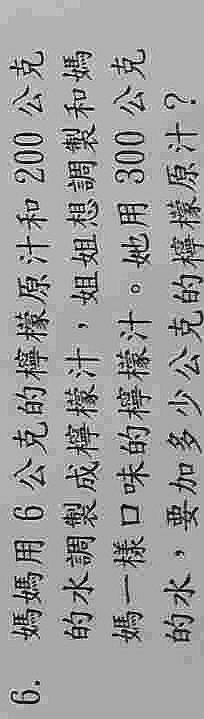 6. 媽媽用 6 公克的檸檬原汁和 200 公克
的水調製成檸檬汁，姐姐想調製和媽
媽一樣口味的檸檬汁。她用 300 公克
的水，要加多少公克的檸檬原汁？